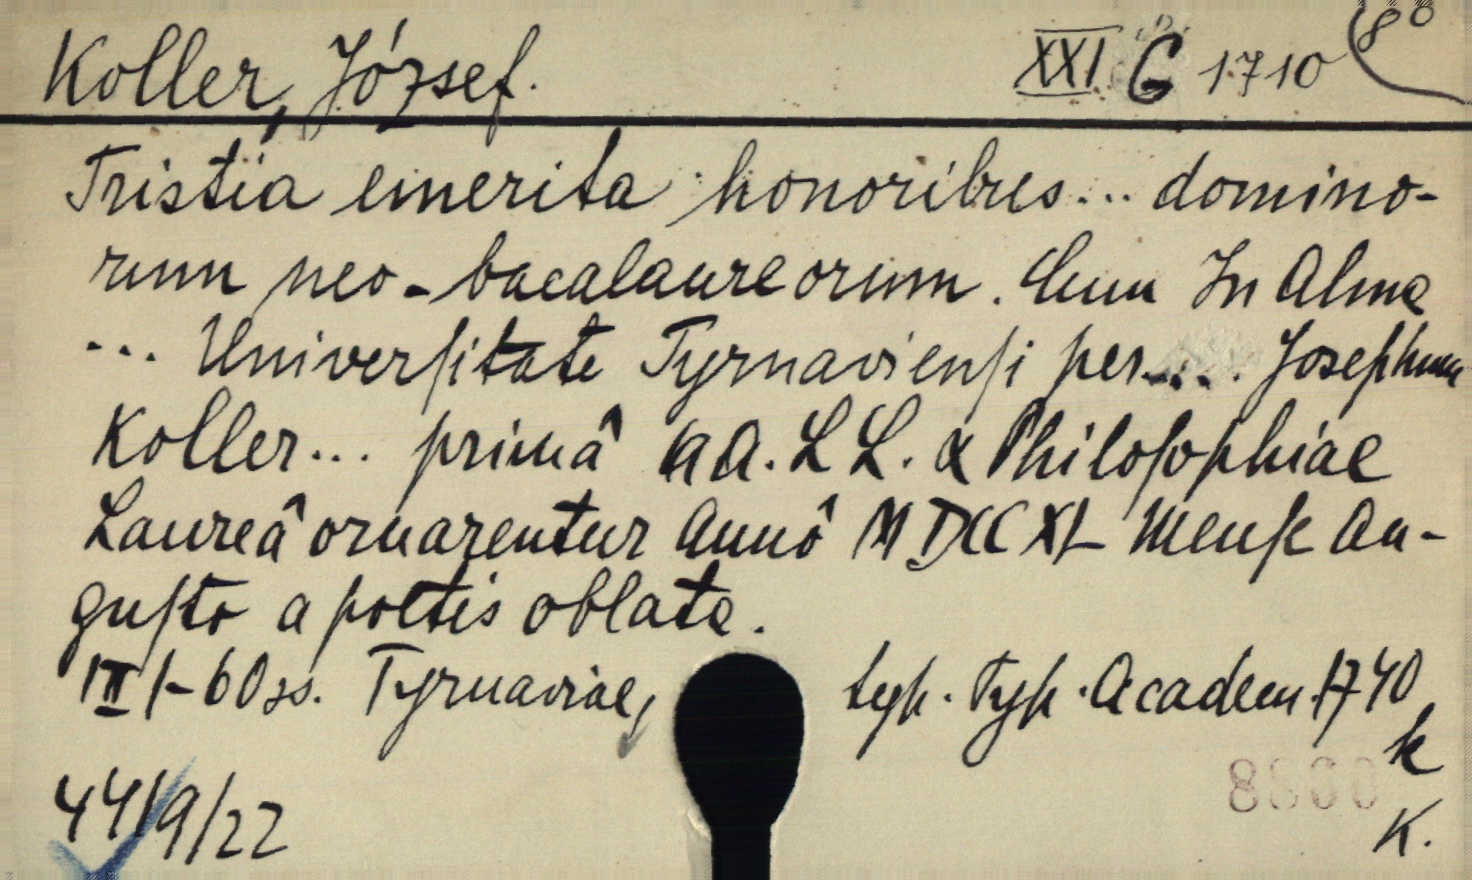 Koller, József. XXI G 1710 80
Tristia emerita honoribus... domino-
rum neo-bacalaureorum. Cum In Alma
... Universitate Tyrnaviensi per.... Josephum
Koller... primâ AA. LL. & Philosophiae
Laureâ ornarentur Annô MDCCXL Mense Au-
gusto a poetis oblata.
60 ss. Tyrnaviae, typ. Typ. Academ. 1740
k
44/9/22
K.